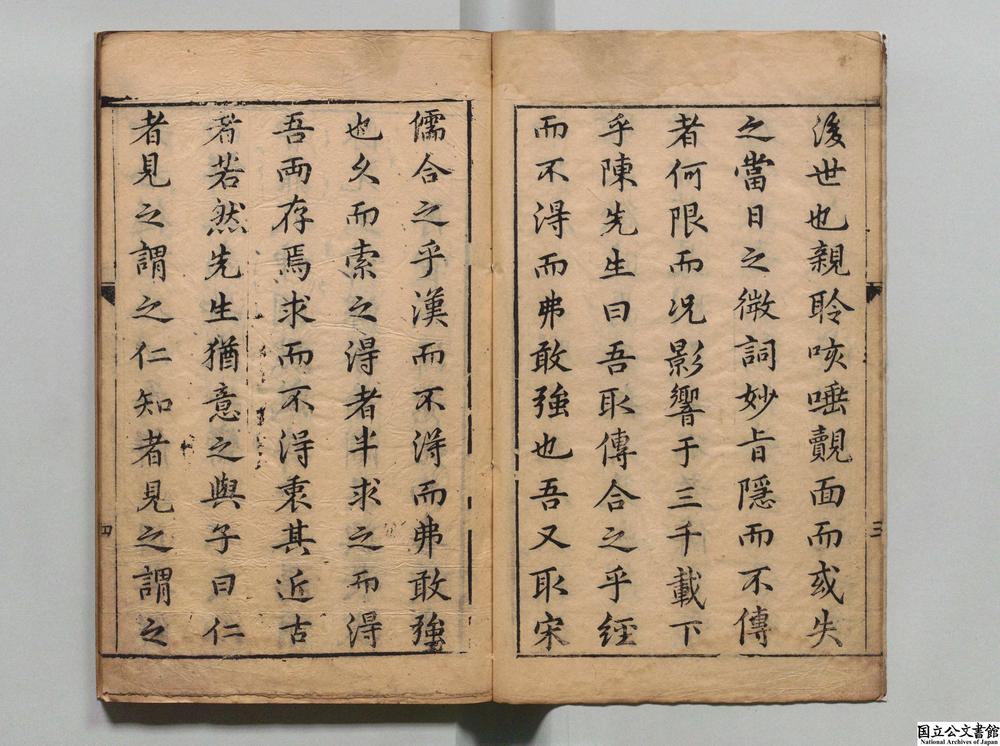 後世也親聆咳唾覿面而或失
之當日之微詞妙旨隱而不傳
者何限而况影響于三千載下
乎陳先生曰吾取傳合之乎經
而不得而弗敢強也吾又取宋
三
儒合之乎漢而不得而弗敢強
也久而索之得者半求之而得
吾兩存焉求而不得衷其近古
者若然先生猶意之與子曰仁
者見之謂之仁知者見之謂之
四
国立公文書館
National Archives of Japan